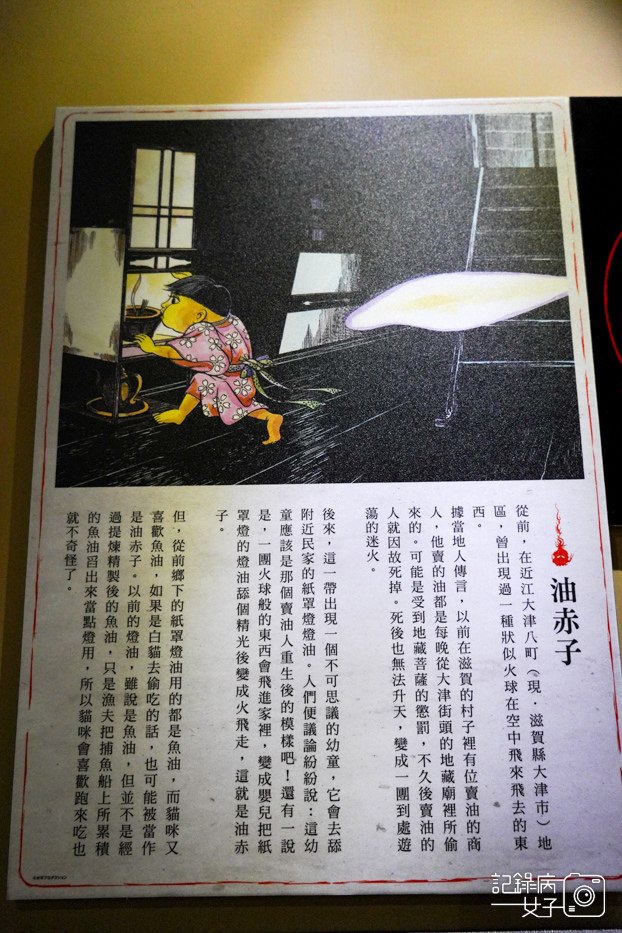 油赤子
從前，在近江大津八町（現．滋賀縣大津市）地
區，曾出現過一種狀似火球在空中飛來飛去的東
西。
據當地人傳言，以前在滋賀的村子裡有位賣油的商
人，他賣的油都是每晚從大津街頭的地藏廟裡所偷
來的。可能是受到地藏菩薩的懲罰，不久後賣油的
人就因故死掉。死後也無法升天，變成一團到處遊
蕩的迷火。
後來，這一帶出現一個不可思議的幼童，它會去舔
附近民家的紙罩燈燈油。人們便議論紛紛說：這幼
童應該是那個賣油人重生後的模樣吧！還有一說
是，一團火球般的東西會飛進家裡，變成嬰兒把紙
罩燈的燈油舔個精光後變成火飛走，這就是油赤
子。
但，從前鄉下的紙罩燈油用的都是魚油，而貓咪又
喜歡魚油，如果是白貓去偷吃的話，也可能被當作
是油赤子。以前的燈油，雖說是魚油，但並不是經
過提煉精製後的魚油，只是漁夫把捕魚船上所累積
的魚油舀出來當點燈用，所以貓咪會喜歡跑來吃也
就不奇怪了。
記錄病
女子